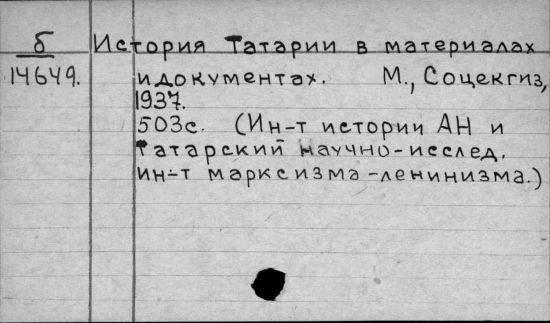 б
14649.
История Татарии в материалах
и документах. М., Соцекгиз,
1937.
503с. (Ин-т истории АН и
Татарский научно-исслед.
ин-т марксизма-ленинизма.)